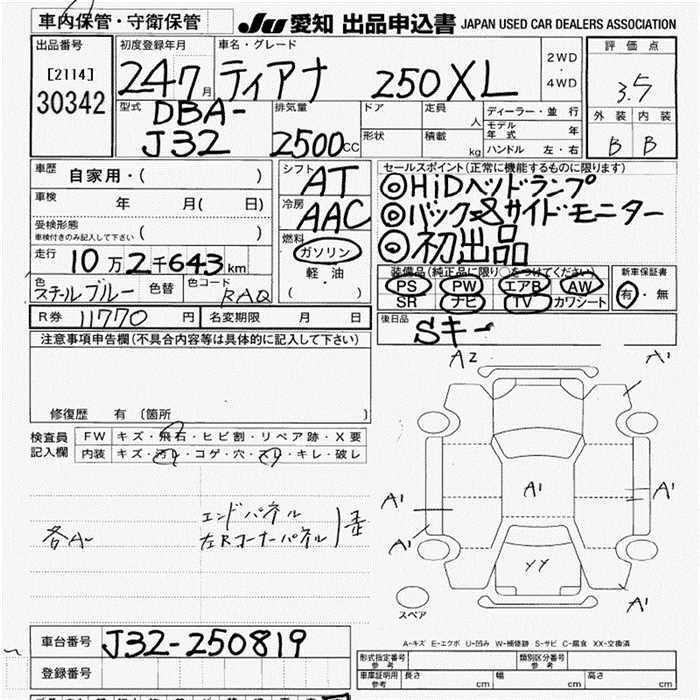 車内保管・守衛保管
JU 愛知 出品申込書 JAPAN USED CAR DEALERS ASSOCIATION
出品番号
[2114]
30342
初度登録年月
24 7 月
車名・グレード
ティアナ 250XL
2WD
・
4WD
評価点
3.5
外装 内装
B B
型式
DBA-
J32
排気量
2500 CC
ドア
形状
定員 人
積載 kg
ディーラー・並行
モデル年式 年
ハンドル 左・右
車歴 自家用・( )
車検 年 月( 日)
受検形態
車検付きのみ記入して下さい ( )
走行 10万2千643 km
色 スチールブルー 色替 色コード RAQ
シフト AT
冷房 AAC
燃料
ガソリン
軽油
( )
セールスポイント(正常に機能するものに限ります)
◎HiDヘッドランプ
◎バック&サイドモニター
◎初出品
装備品(純正品に限り○をつけてください)
PS PW エアB AW
SR ナビ TV カワシート
新車保証書
有・無
R券 11770 円 名変期限 月 日
後日品
Sキー
注意事項申告欄(不具合内容等は具体的に記入して下さい)
修復歴 有 〔箇所 〕
検査員
記入欄
FW キズ・飛石・ヒビ割・リペア跡・X要
内装 キズ・汚レ・コゲ・穴・スレ・キレ・破レ
各A
エンドパネル
左Rコーナーパネル
歪
A2 A1
A1
A1 A1
A1
YY
A1
スペア
A-キズ E-エクボ U-凹み W-補修跡 S-サビ C-腐食 XX-交換済
車台番号 J32-250819
登録番号
形式指定番号
参考
類別区分番号
参考
車庫証明用
参考
長さ cm 幅 cm 高さ cm